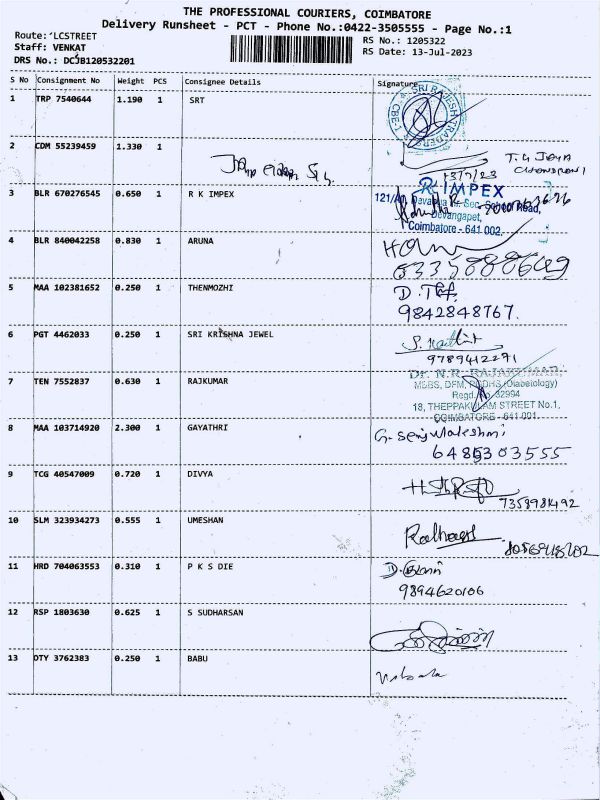 THE PROFESSIONAL COURIERS, COIMBATORE
Delivery Runsheet - PCT - Phone No.:0422-3505555 - Page No.:1
Route: LCSTREET
RS No.: 1205322
Staff: VENKAT
RS Date: 13-Jul-2023
DRS No.: DCJB120532201
S No Consignment No Weight PCS Consignee Details Signature
1 TRP 7540644 1.190 1 SRT
SRI RAJESH TRADERS CBE-1
2 CDM 55239459 1.330 1
T.G JAYA
13/7/23
3 BLR 670276545 0.650 1 R K IMPEX
R. IMPEX
Sec. School Road,
Devangapet,
Coimbatore - 641 002.
4 BLR 840042258 0.830 1 ARUNA
5 MAA 102381652 0.250 1 THENMOZHI
9842848767
6 PGT 4462033 0.250 1 SRI KRISHNA JEWEL
9789412271
7 TEN 7552837 0.630 1 RAJKUMAR
Dr. N.R. RAJAKUMAR,
MBBS, DFM, PGDHS (Diabetology)
Regd. No. 32994
18, THEPPAKULAM STREET No.1,
COIMBATORE - 641 001.
8 MAA 103714920 2.300 1 GAYATHRI
6485303555
9 TCG 40547009 0.720 1 DIVYA
7358981492
10 SLM 323934273 0.555 1 UMESHAN
11 HRD 704063553 0.310 1 P K S DIE
9894620106
12 RSP 1803630 0.625 1 S SUDHARSAN
13 DTY 3762383 0.250 1 BABU